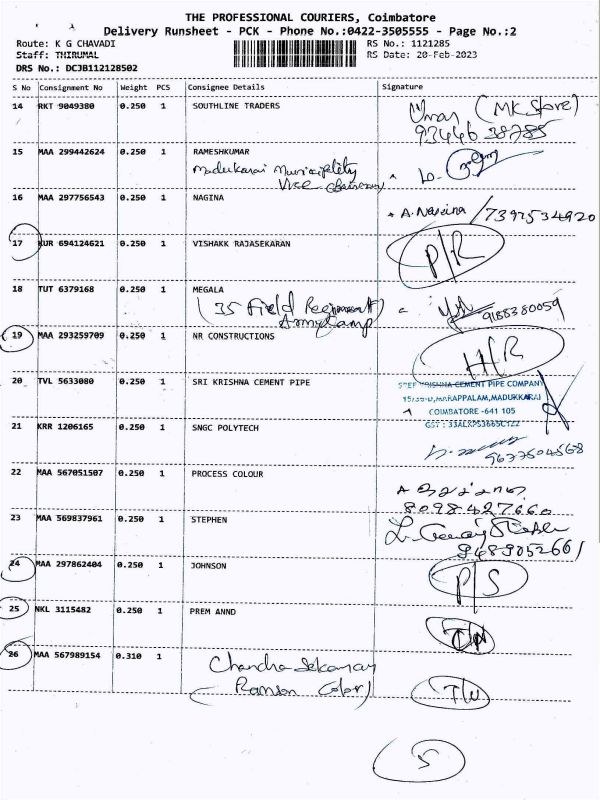 THE PROFESSIONAL COURIERS, Coimbatore
Delivery Runsheet - PCK - Phone No.:0422-3505555 - Page No.:2
Route: K G CHAVADI
RS No.: 1121285
Staff: THIRUMAL
RS Date: 20-Feb-2023
DRS No.: DCJB112128502
S No Consignment No Weight PCS Consignee Details Signature
14 RKT 9049380 0.250 1 SOUTHLINE TRADERS (MK Store)
15 MAA 299442624 0.250 1 RAMESHKUMAR
Madukarai Municipality
Vice chairman
16 MAA 297756543 0.250 1 NAGINA A. Nagina / 7397534920
17 KUR 694124621 0.250 1 VISHAKK RAJASEKARAN P/R
18 TUT 6379168 0.250 1 MEGALA
(35 Field Regiment 9188380059
Army Camp)
19 MAA 293259709 0.250 1 NR CONSTRUCTIONS H/R
20 TVL 5633080 0.250 1 SRI KRISHNA CEMENT PIPE KRISHNA CEMENT PIPE COMPANY
MARAPPALAM, MADUKKARAI
COIMBATORE -641 105
21 KRR 1206165 0.250 1 SNGC POLYTECH
9633504568
22 MAA 567051507 0.250 1 PROCESS COLOUR
8098427660
23 MAA 569837961 0.250 1 STEPHEN
9489052661
24 MAA 297862404 0.250 1 JOHNSON P/S
25 NKL 3115482 0.250 1 PREM ANND
26 MAA 567989154 0.310 1 Chandrasekaran
(Ranson Color) I/N
5